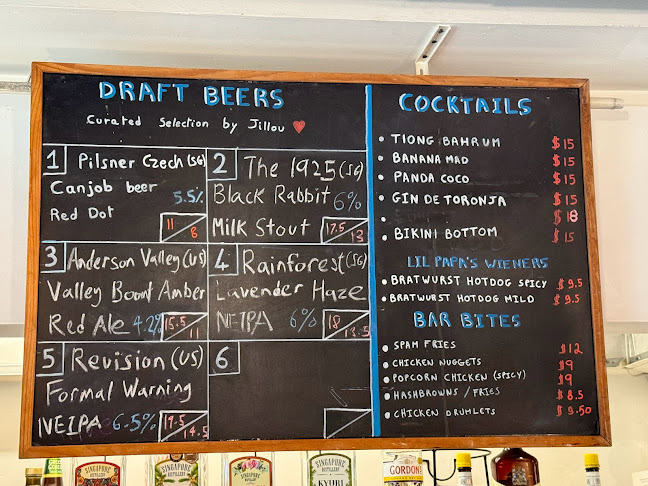 DRAFT BEERS
Curated Selection by Jillou
1 Pilsner Czech (SG)
Canjob beer 5.5%
Red Dot 11 / 8
2 The 1925 (SG)
Black Rabbit 6%
Milk Stout 17.5 / 13
3 Anderson Valley (US)
Valley Boont Amber
Red Ale 4.2% 15.5 / 11
4 Rainforest (SG)
Lavender Haze
NEIPA 6% 18 / 13.5
5 Revision (US)
Formal Warning
NEIPA 6.5% 19.5 / 14.5
6
COCKTAILS
TIONG BAHRUM $15
BANANA MAD $15
PANDA COCO $15
GIN DE TORONJA $15
$18
BIKINI BOTTOM $15
LIL PAPA'S WIENERS
BRATWURST HOTDOG SPICY $9.5
BRATWURST HOTDOG MILD $9.5
BAR BITES
SPAM FRIES $12
CHICKEN NUGGETS $9
POPCORN CHICKEN (SPICY) $9
HASHBROWNS / FRIES $8.5
CHICKEN DRUMLETS $9.50
SINGAPORE
DISTILLERY
SINGAPORE
DISTILLERY
SINGAPORE
DISTILLERY
SINGAPORE
DISTILLERY
KYURI
GORDON'S